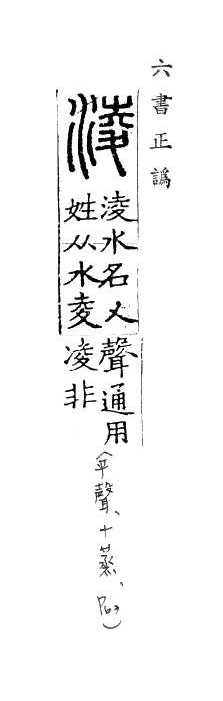 六書正譌
淩
淩水名人
姓从水夌
聲通用
凌非
(平聲、十蒸、